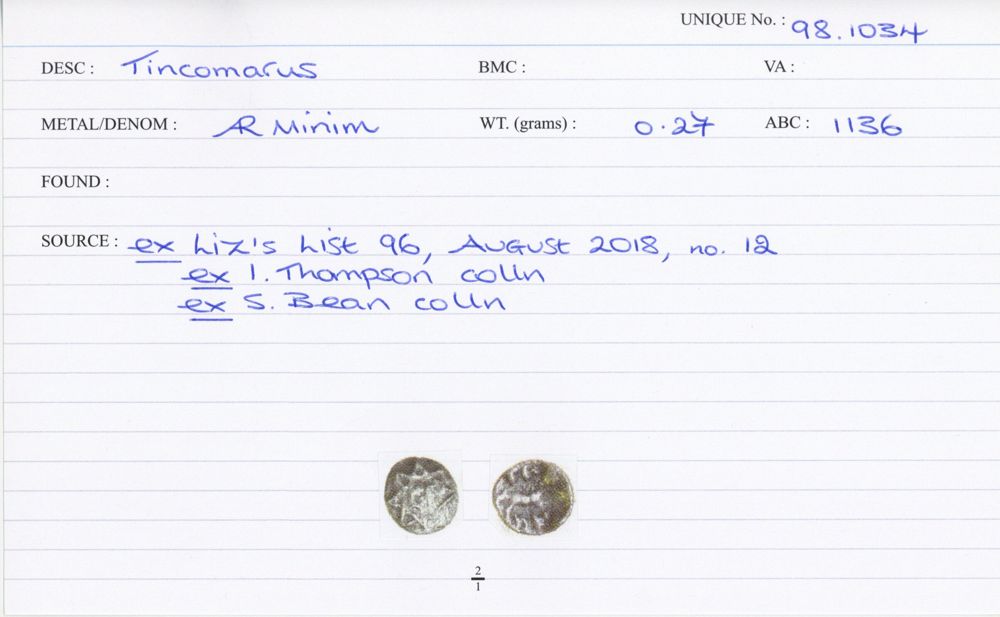 UNIQUE No. : 98.1034
DESC : Tincomarus BMC : VA :
METAL/DENOM : AR Minim WT. (grams) : 0.27 ABC : 1136
FOUND :
SOURCE : ex Liz's List 96, August 2018, no. 12
ex I. Thompson colln
ex S. Bean colln
2
1